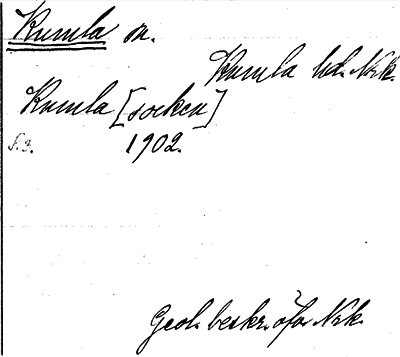 Kumla sn.
Kumla hd. Nrk.
Kumla [socken]
s. 3.
1902.
Geol. beskr. öfv. Nrk.